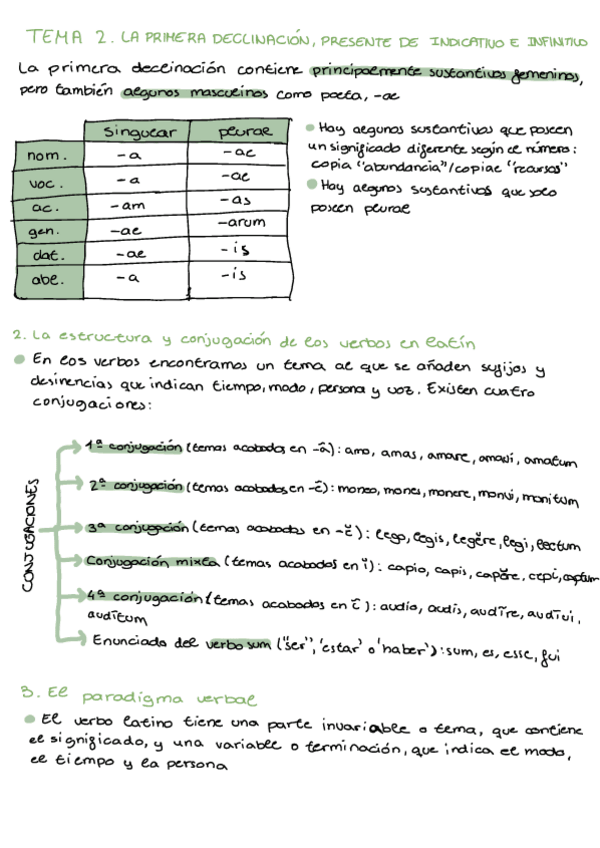 TEMA 2. LA PRIMERA DECLINACIÓN, PRESENTE DE INDICATIVO E INFINITIVO
La primera declinación contiene principalmente sustantivos femeninos,
pero también algunos masculinos como poeta, -ae
singular plural
nom. -a -ae
voc. -a -ae
ac. -am -as
gen. -ae -arum
dat. -ae -is
abl. -a -is
Hay algunos sustantivos que poseen
un significado diferente según el número:
copia "abundancia"/copiae "recursos"
Hay algunos sustantivos que solo
poseen plural
2. La estructura y conjugación de los verbos en latín
En los verbos encontramos un tema al que se añaden sufijos y
desinencias que indican tiempo, modo, persona y voz. Existen cuatro
conjugaciones:
CONJUGACIONES
1ª conjugación (temas acabados en -ā): amo, amas, amare, amavi, amatum
2ª conjugación (temas acabados en -ē): moneo, mones, monere, monui, monitum
3ª conjugación (temas acabados en -ĕ): lego, legis, legĕre, legi, lectum
Conjugación mixta (temas acabados en ĭ): capio, capis, capĕre, cepi, captum
4ª conjugación (temas acabados en ī): audio, audis, audīre, audīvi,
audītum
Enunciado del verbo sum ("ser", 'estar' o 'haber'): sum, es, esse, fui
3. El paradigma verbal
El verbo latino tiene una parte invariable o tema, que contiene
el significado, y una variable o terminación, que indica el modo,
el tiempo y la persona